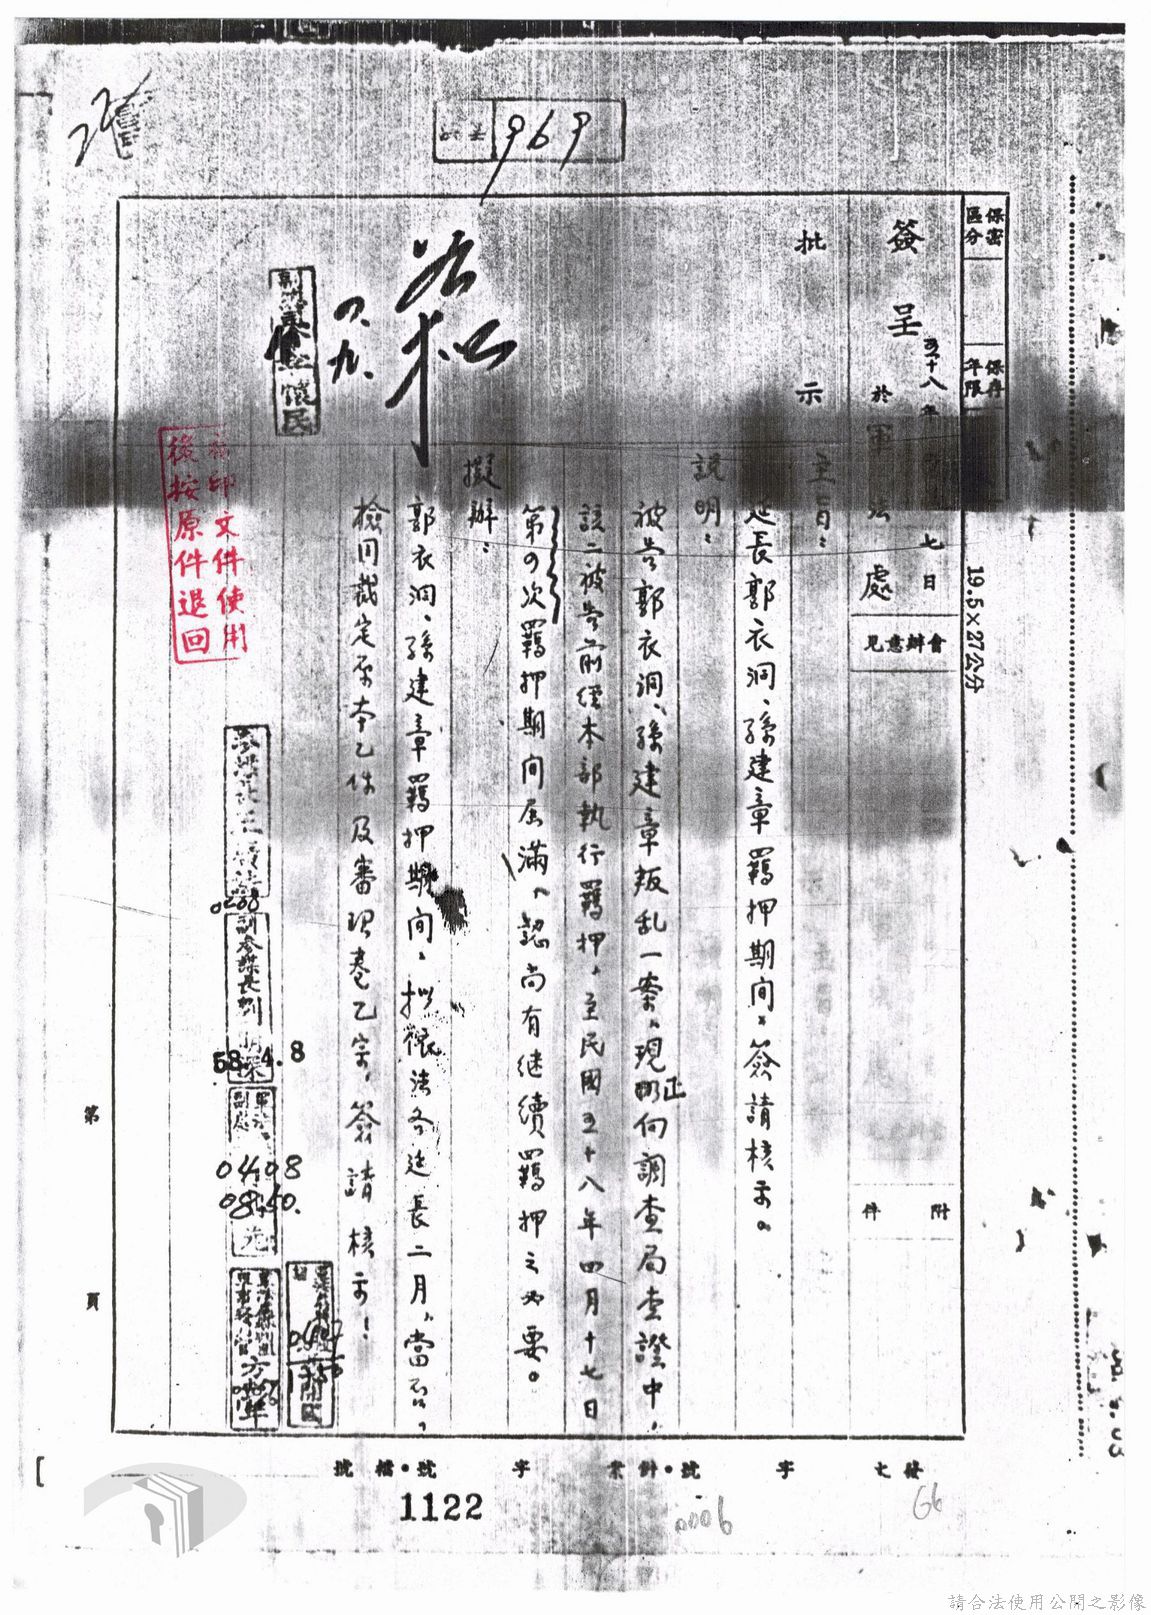 969
保密
區分
保存
年限
簽呈
五十八年
七日
於軍法處
會辦意見
附件
批示
主旨：
延長郭衣洞、孫建章羈押期間，簽請核示。
說明：
被告郭衣洞、孫建章叛乱一案，現正向調查局查證中，
該二被告前經本部執行羈押，至民國五十八年四月十七日
第四次羈押期間屆滿，認尚有继續羈押之必要。
擬辦：
郭衣洞、孫建章羈押期间，拟依法各延長二月，當否，
檢同裁定原本乙件及審理卷乙宗，簽請核示！
如拟
八、九、
58.4.8
0408
0850.
印文件使用
後按原件退回
19.5×27公分
第
頁
發文
字
號・計
業
字
號・檔
號
1122
0006
66
請合法使用公開之影像